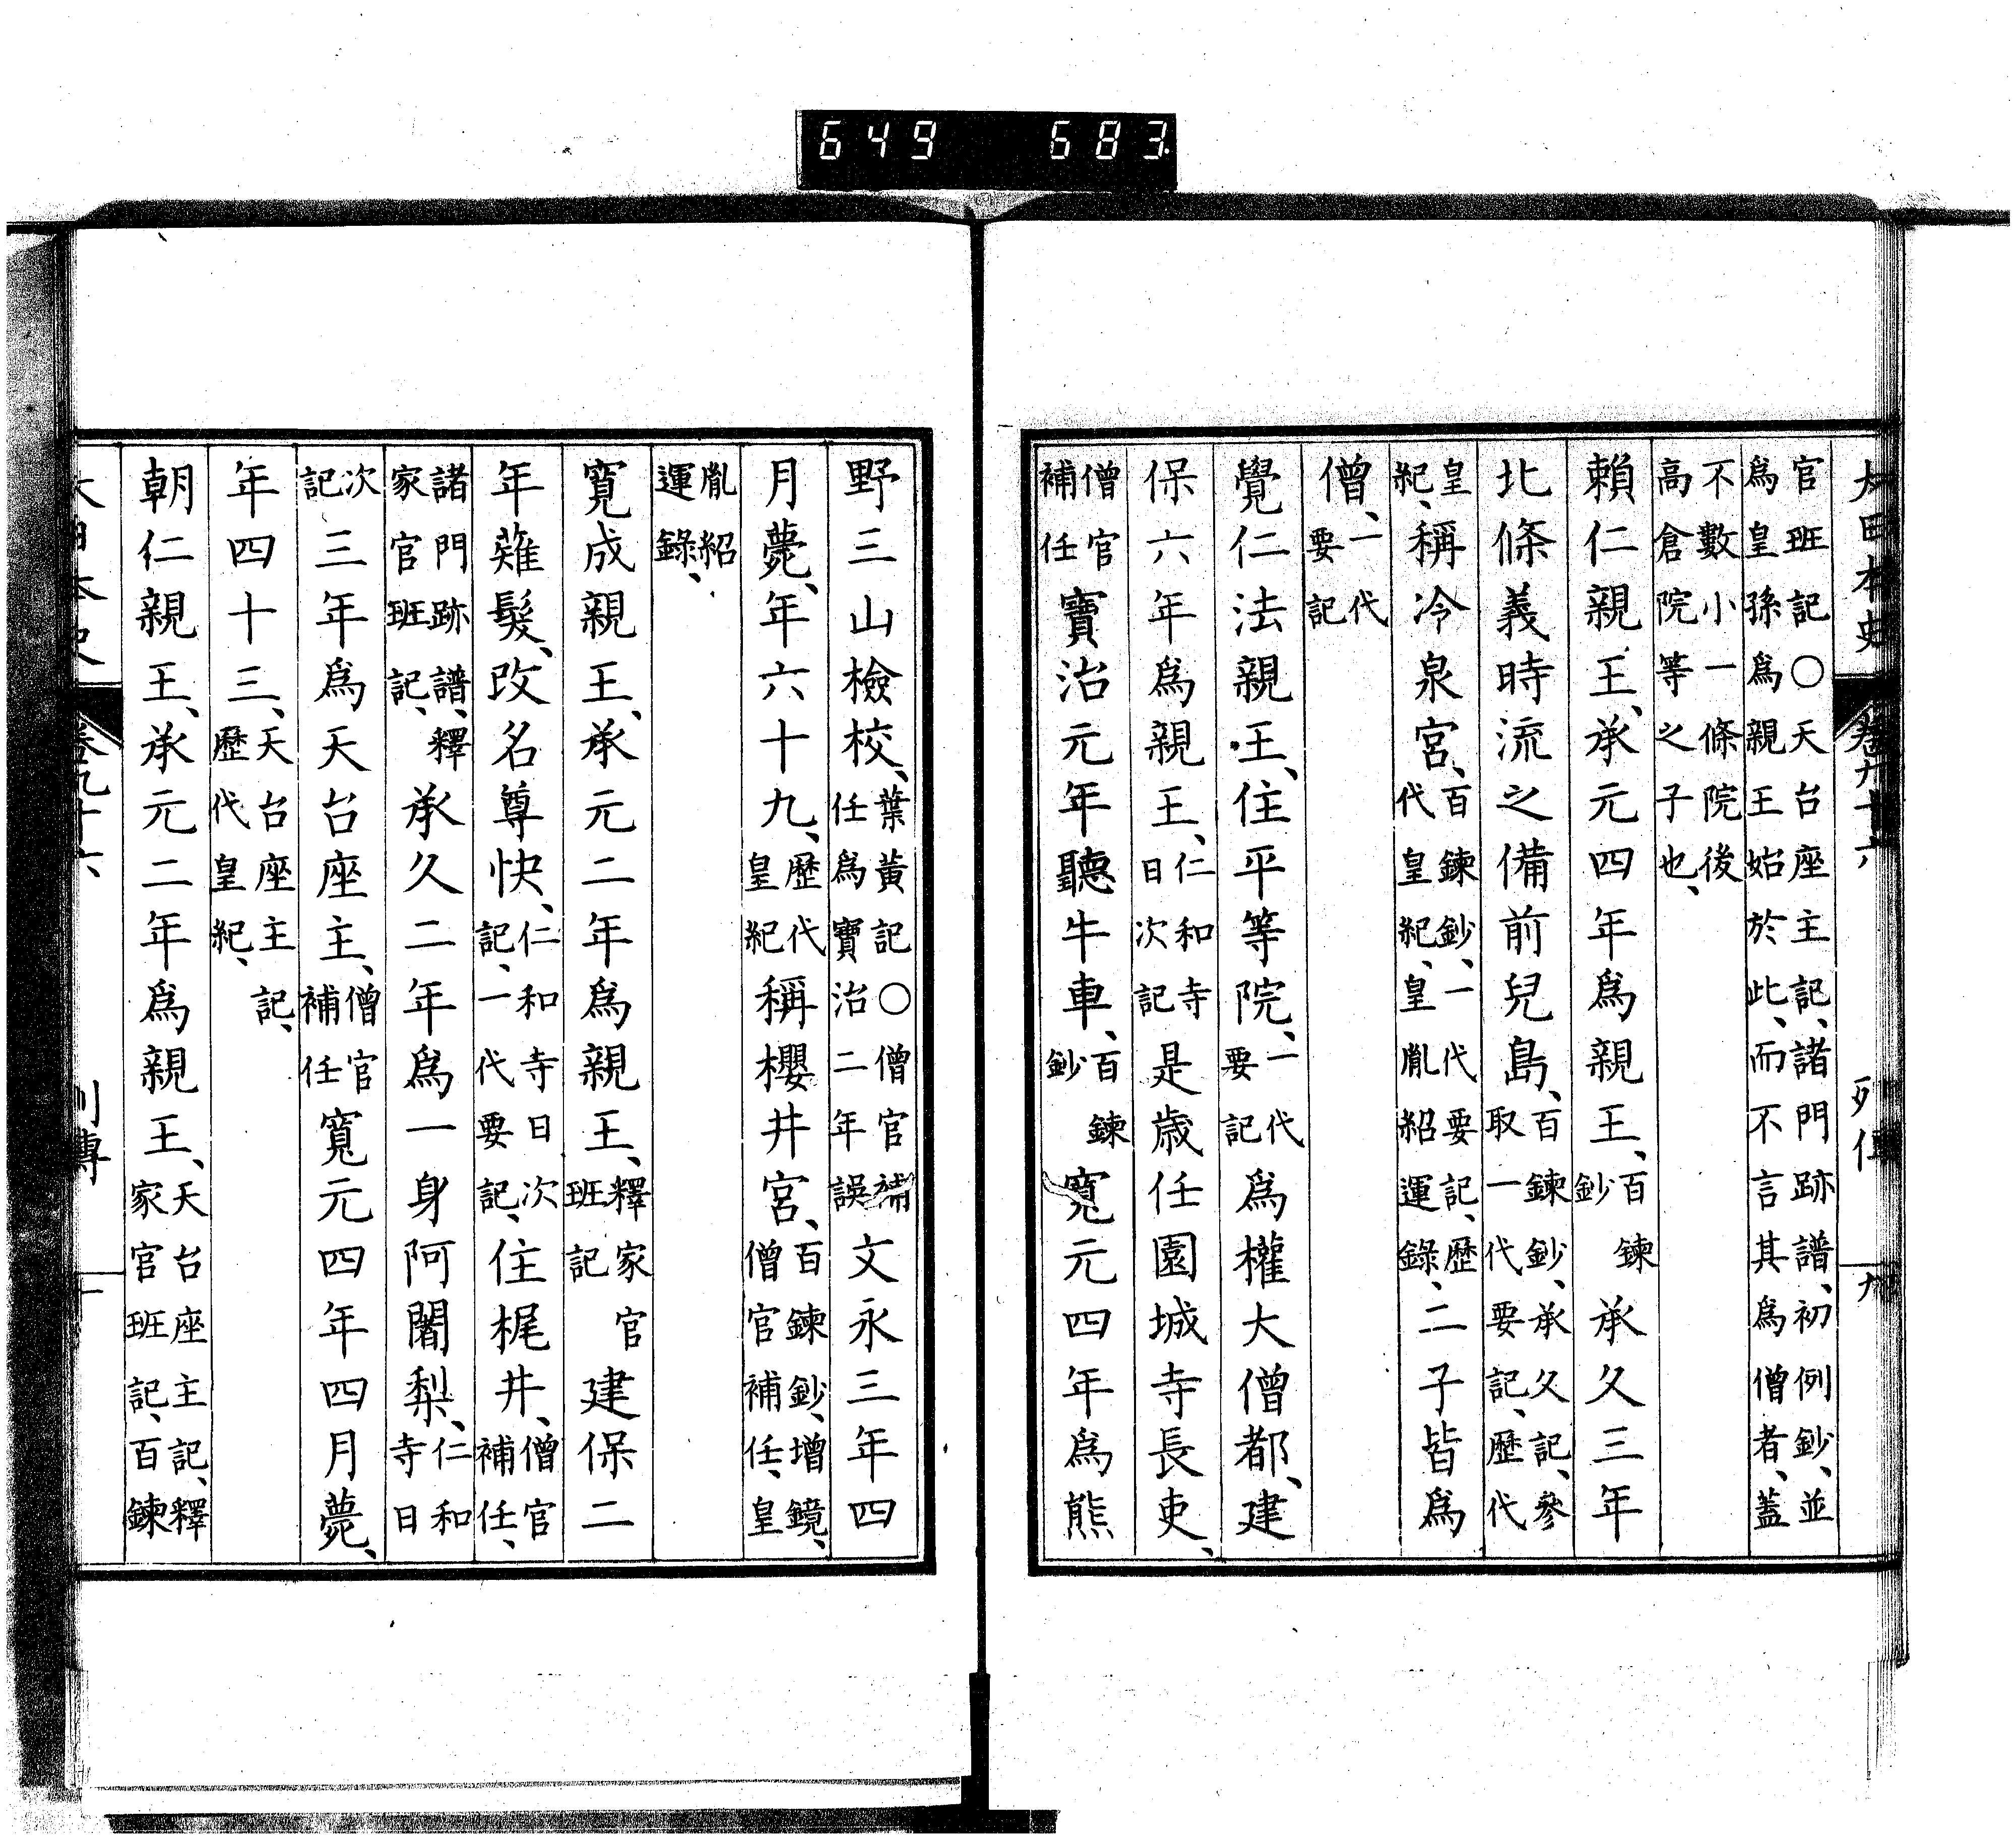 649 683
大日本史 卷九十六 列傳 九
官班記○天台座主記、諸門跡譜、初例鈔、並
爲皇孫爲親王始於此、而不言其爲僧者、蓋
不數小一條院後
高倉院等之子也、
賴仁親王、承元四年爲親王、百鍊鈔承久三年
北條義時流之備前兒島、百鍊鈔、承久記、參取一代要記、歷代
皇紀、稱冷泉宮、百鍊鈔、一代要記、歷代皇紀、皇胤紹運錄、二子皆爲
僧、一代要記
覺仁法親王、住平等院、一代要記爲權大僧都、建
保六年爲親王、仁和寺日次記是歲任園城寺長吏、
僧官補任寶治元年聽牛車、百鍊鈔寬元四年爲熊
野三山檢校、葉黃記○僧官補任爲寶治二年誤文永三年四
月薨、年六十九、歷代皇紀稱櫻井宮、百鍊鈔、增鏡、僧官補任、皇
胤紹運錄、
寬成親王、承元二年爲親王、釋家官班記建保二
年薙髮、改名尊快、仁和寺日次記、一代要記、住梶井、僧官補任、
諸門跡譜、釋家官班記、承久二年爲一身阿闍梨、仁和寺日
次記三年爲天台座主、僧官補任寬元四年四月薨、
年四十三、天台座主記、歷代皇紀、
朝仁親王、承元二年爲親王、天台座主記、釋家官班記、百鍊
大日本史 卷九十六 列傳